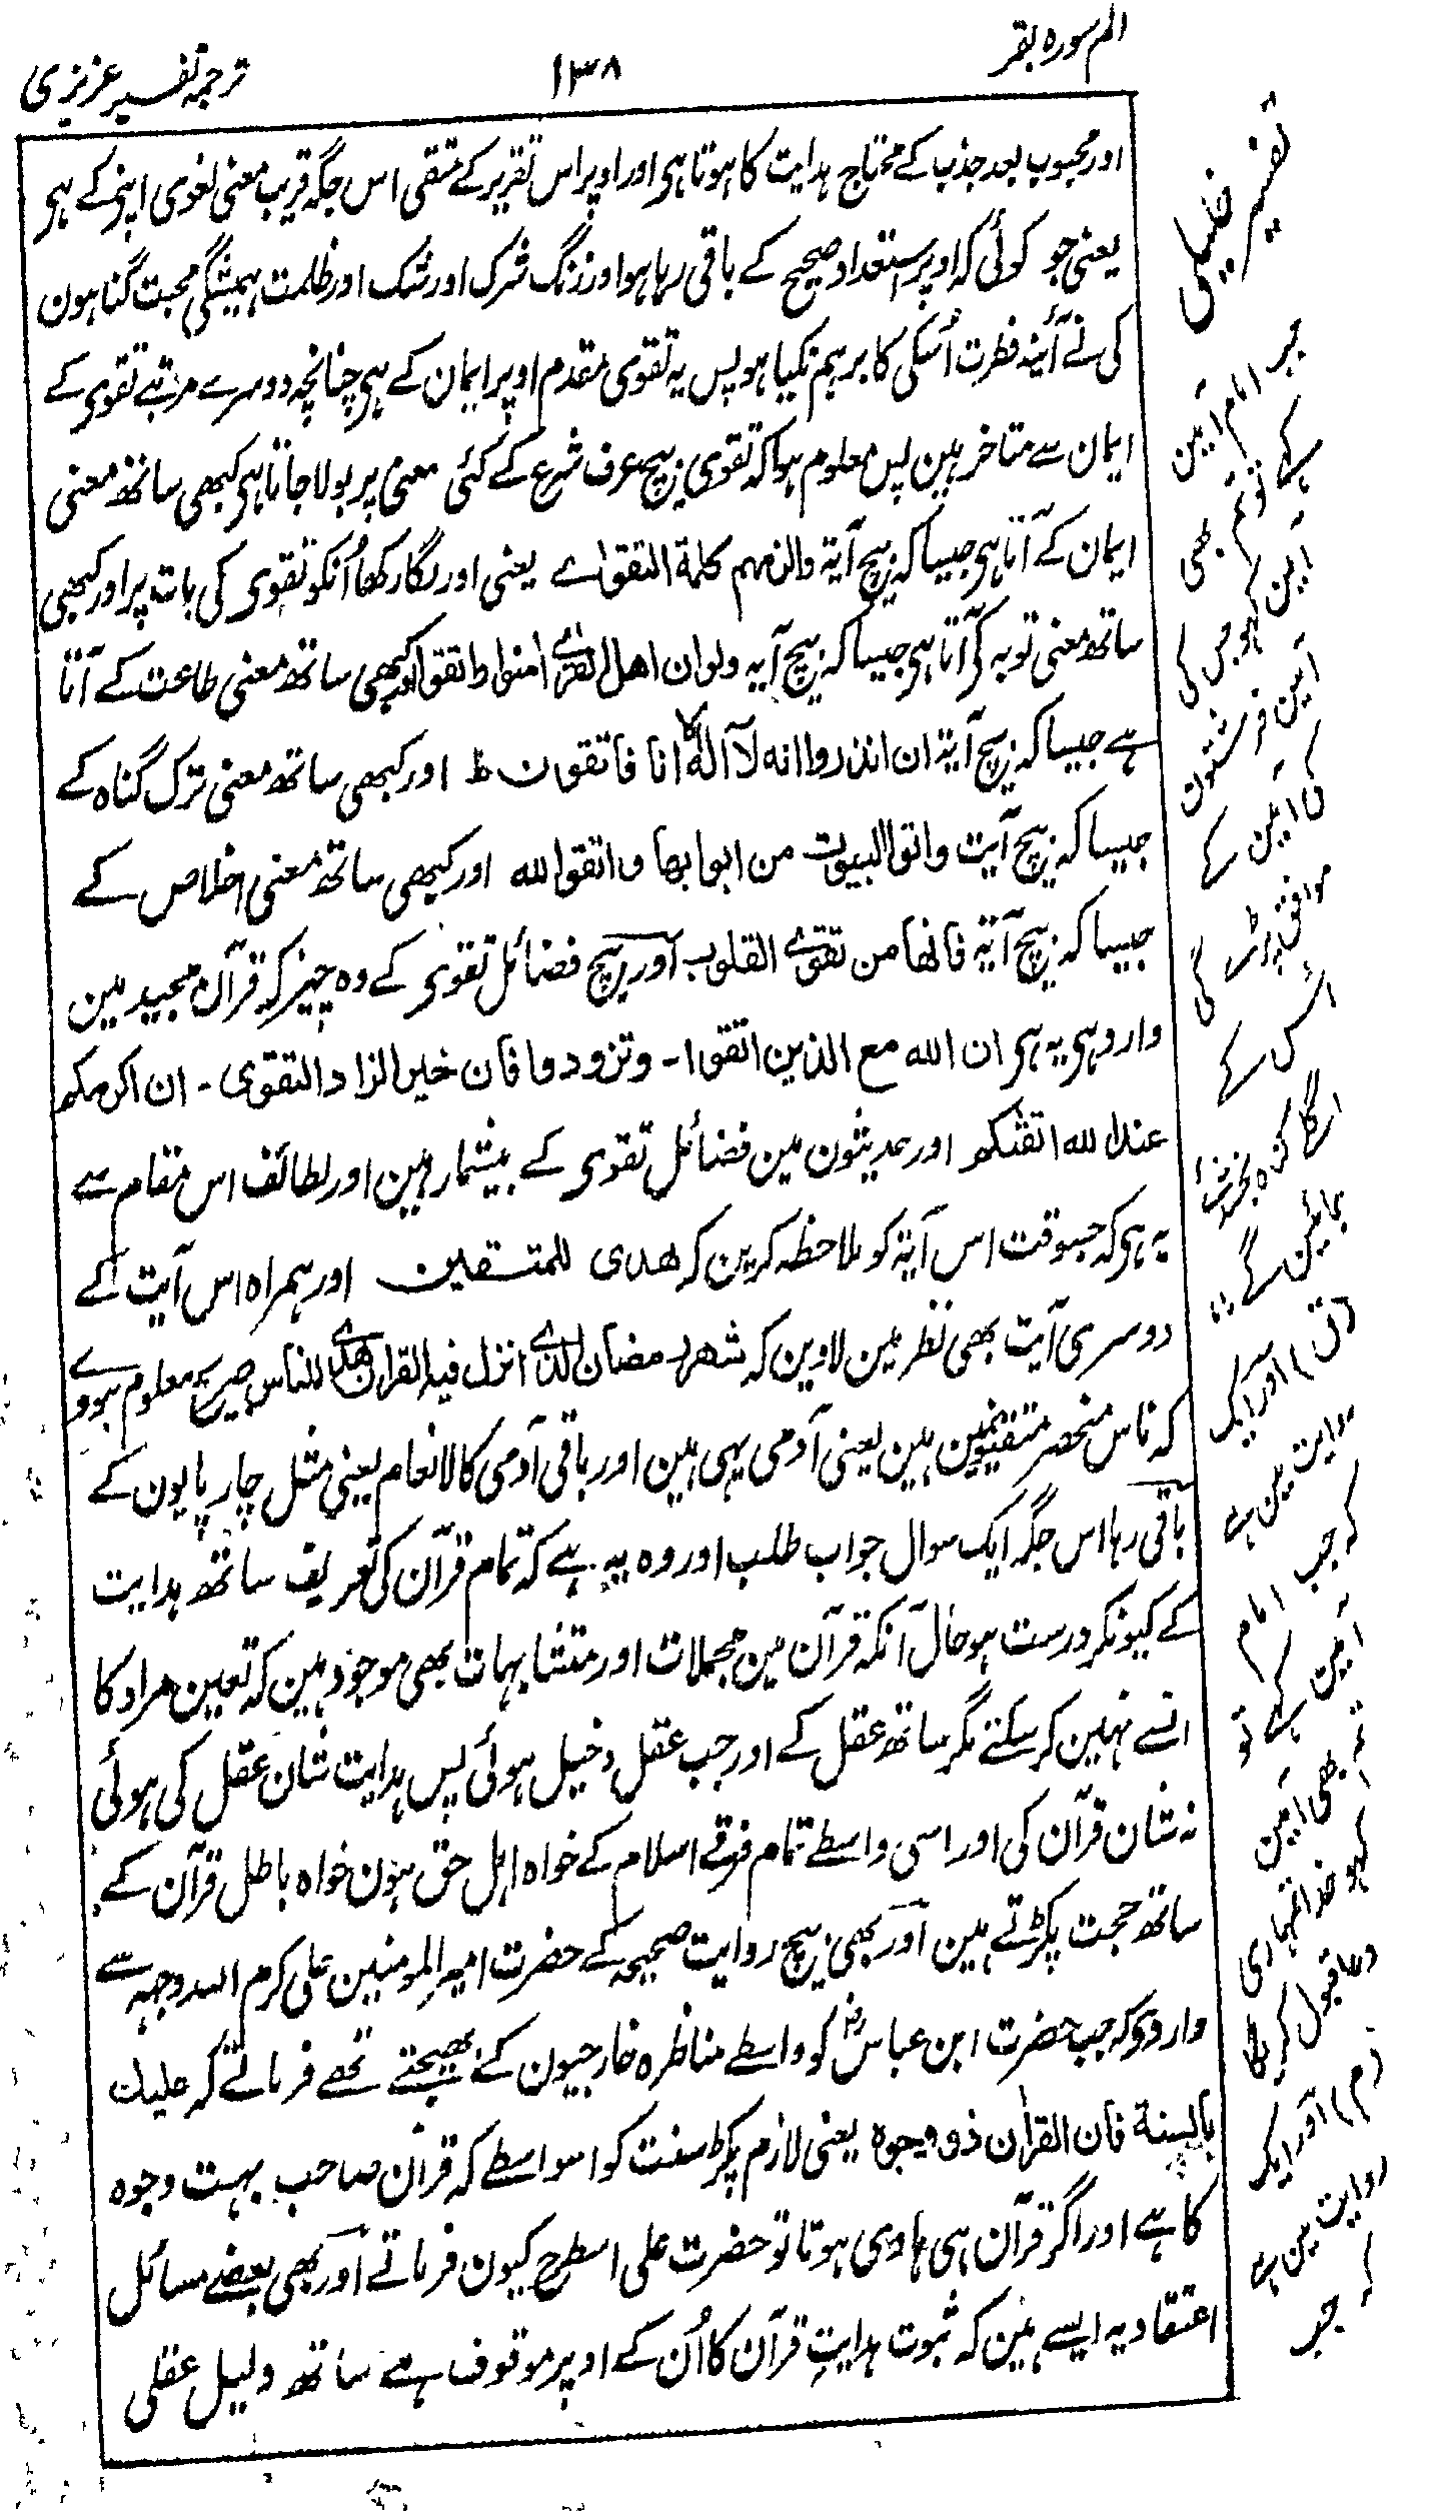 الم سوره بقر
۱۳۸
ترجمہ تفسیر عزیزی
اور محبوب بعد جذب کے محتاج ہدایت کا ہوتا ہی اور اوپر اس تقریر کے متقی اس جگہ قریب معنی لغوی اپنی کے ہی
یعنی جو کوئی کہ اوپر استعداد صحیح کے باقی رہا ہو اور زنگ شرک اور شک اور ظلمت ہمیشگی محبت گناہون
کی نے آئینہ فطرت اُسکی کا برہم نکیا ہو پس یہ تقوی مقدم اوپر ایمان کے ہی چنانچہ دوسرے مرتبے تقوی کے
ایمان سے متاخر ہین پس معلوم ہوا کہ تقوی بیچ عرف شرع کے کئی معنی پر بولا جاتا ہی کبھی ساتھ معنی
ایمان کے آتا ہی جیسا کہ بیچ آیۃ والزمہم کلمۃ التقوٰے یعنی اور لگا رکھا اُنکو تقوی کی بات پر اور کبھی
ساتھ معنی توبہ کے آتا ہی جیسا کہ بیچ آیہ ولو ان اهل القرٰے امنوا واتقوا اور کبھی ساتھ معنی طاعت کے آتا
ہے جیسا کہ بیچ آیۃ ان انذروا انه لآ اله الا انا فاتقون ط اور کبھی ساتھ معنی ترک گناہ کے
جیسا کہ بیچ آیت واتوا البیوت من ابوابها واتقوا لله اور کبھی ساتھ معنی اخلاص کے
جیسا کہ بیچ آیۃ فانها من تقوے القلوب اور بیچ فضائل تقوی کے وہ چیز کہ قرآن مجید مین
وارد ہی یہ ہی ان الله مع الذین اتقوا ۔ وتزودوا فان خیر الزاد التقوی ۔ ان اکرمکم
عند الله اتقٰکم اور حدیثون مین فضائل تقوی کے بیشمار ہین اور لطائف اس مقام سے
یہ ہی کہ جسوقت اس آیۃ کو ملاحظہ کرین کہ هدی للمتقین اور ہمراہ اس آیت کے
دوسری آیت بھی نظر مین لاوین کہ شهر رمضان الذے انزل فیه القران هدے للناس صریح معلوم ہووے
کہ ناس منحصر متقیونمین ہین یعنی آدمی یہی ہین اور باقی آدمی کالانعام یعنی مثل چارپایون کے
باقی رہا اس جگہ ایک سوال جواب طلب اور وہ یہ ہے کہ تمام قرآن کی تعریف ساتھ ہدایت
کے کیونکر درست ہو حال آنکہ قرآن مین مجملات اور متشابہات بھی موجود ہین کہ تعین مراد کا
انسے نہین کر سکتے مگر ساتھ عقل کے اور جب عقل دخیل ہوئی پس ہدایت شان عقل کی ہوئی
نہ شان قرآن کی اور اسی واسطے تمام فرقے اسلام کے خواہ اہل حق ہون خواہ باطل قرآن کے
ساتھ حجت پکڑتے ہین اور بھی بیچ روایت صحیحہ کے حضرت امیر المومنین علی کرم اللہ وجہہ سے
وارد ہی کہ جب حضرت ابن عباس رض کو واسطے مناظرہ خارجیون کے بھیجتے تھے فرماتے کہ علیك
بالسنة فان القران ذو وجوه یعنی لازم پکڑ سنت کو اسواسطے کہ قرآن صاحب بہت وجوہ
کا ہے اور اگر قرآن ہی ہادی ہوتا تو حضرت علی اسطرح کیون فرماتے اور بھی بعضے مسائل
اعتقادیہ ایسے ہین کہ ثبوت ہدایت قرآن کا اُن کے اوپر موقوف ہے ساتھ دلیل عقلی
جب امام آمین
کہے تو تم بھی
آمین کہو جس کی
آمین فرشتون
کی آمین کے
موافق پڑے گی
اُس کے
اگلے گناہ بخشے
جائین گے
(ق) اور ایک
روایت مین ہے
کہ جب امام
آمین کہے تو
تم بھی آمین
کہو خدا تمہاری
دعا قبول کریگا
(م) اور ایک
روایت مین ہے
کہ جب